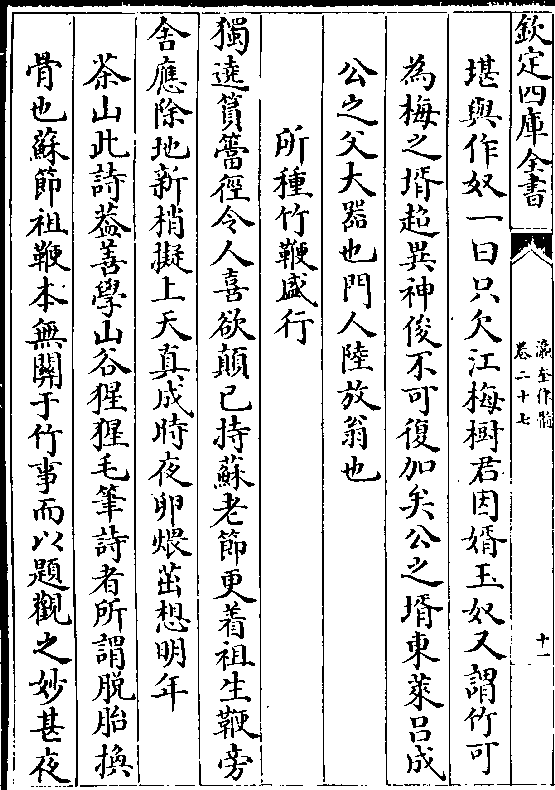 欽定四庫全書
瀛奎律髓
卷二十七
十一
堪與作奴一曰只欠江梅樹君因婿玉奴又謂竹可
為梅之壻超異神俊不可復加矣公之壻東萊吕成
公之父大器也門人陸放翁也
所種竹鞭盛行
獨遶篔簹徑令人喜欲顛已持蘇老節更着祖生鞭旁
舍應除地新梢擬上天真成時夜卵煨茁想明年
茶山此詩葢善學山谷猩猩毛筆詩者所謂脱胎換
骨也蘇節祖鞭本無關于竹事而以題觀之妙甚夜